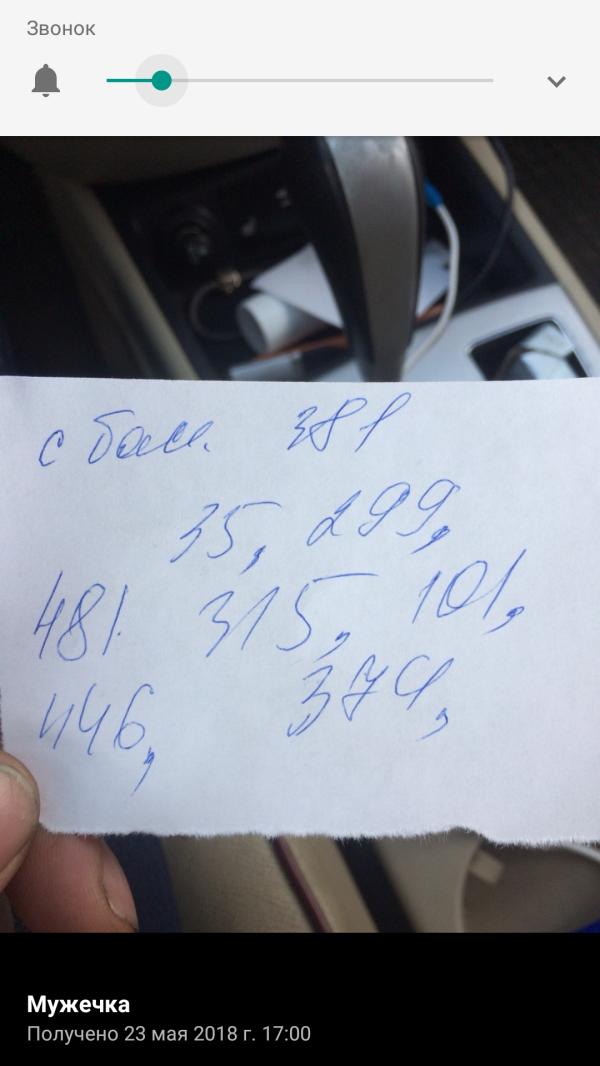 Звонок
с бал. 381
35, 299,
481. 315, 101,
446, 374,
Мужечка
Получено 23 мая 2018 г. 17:00